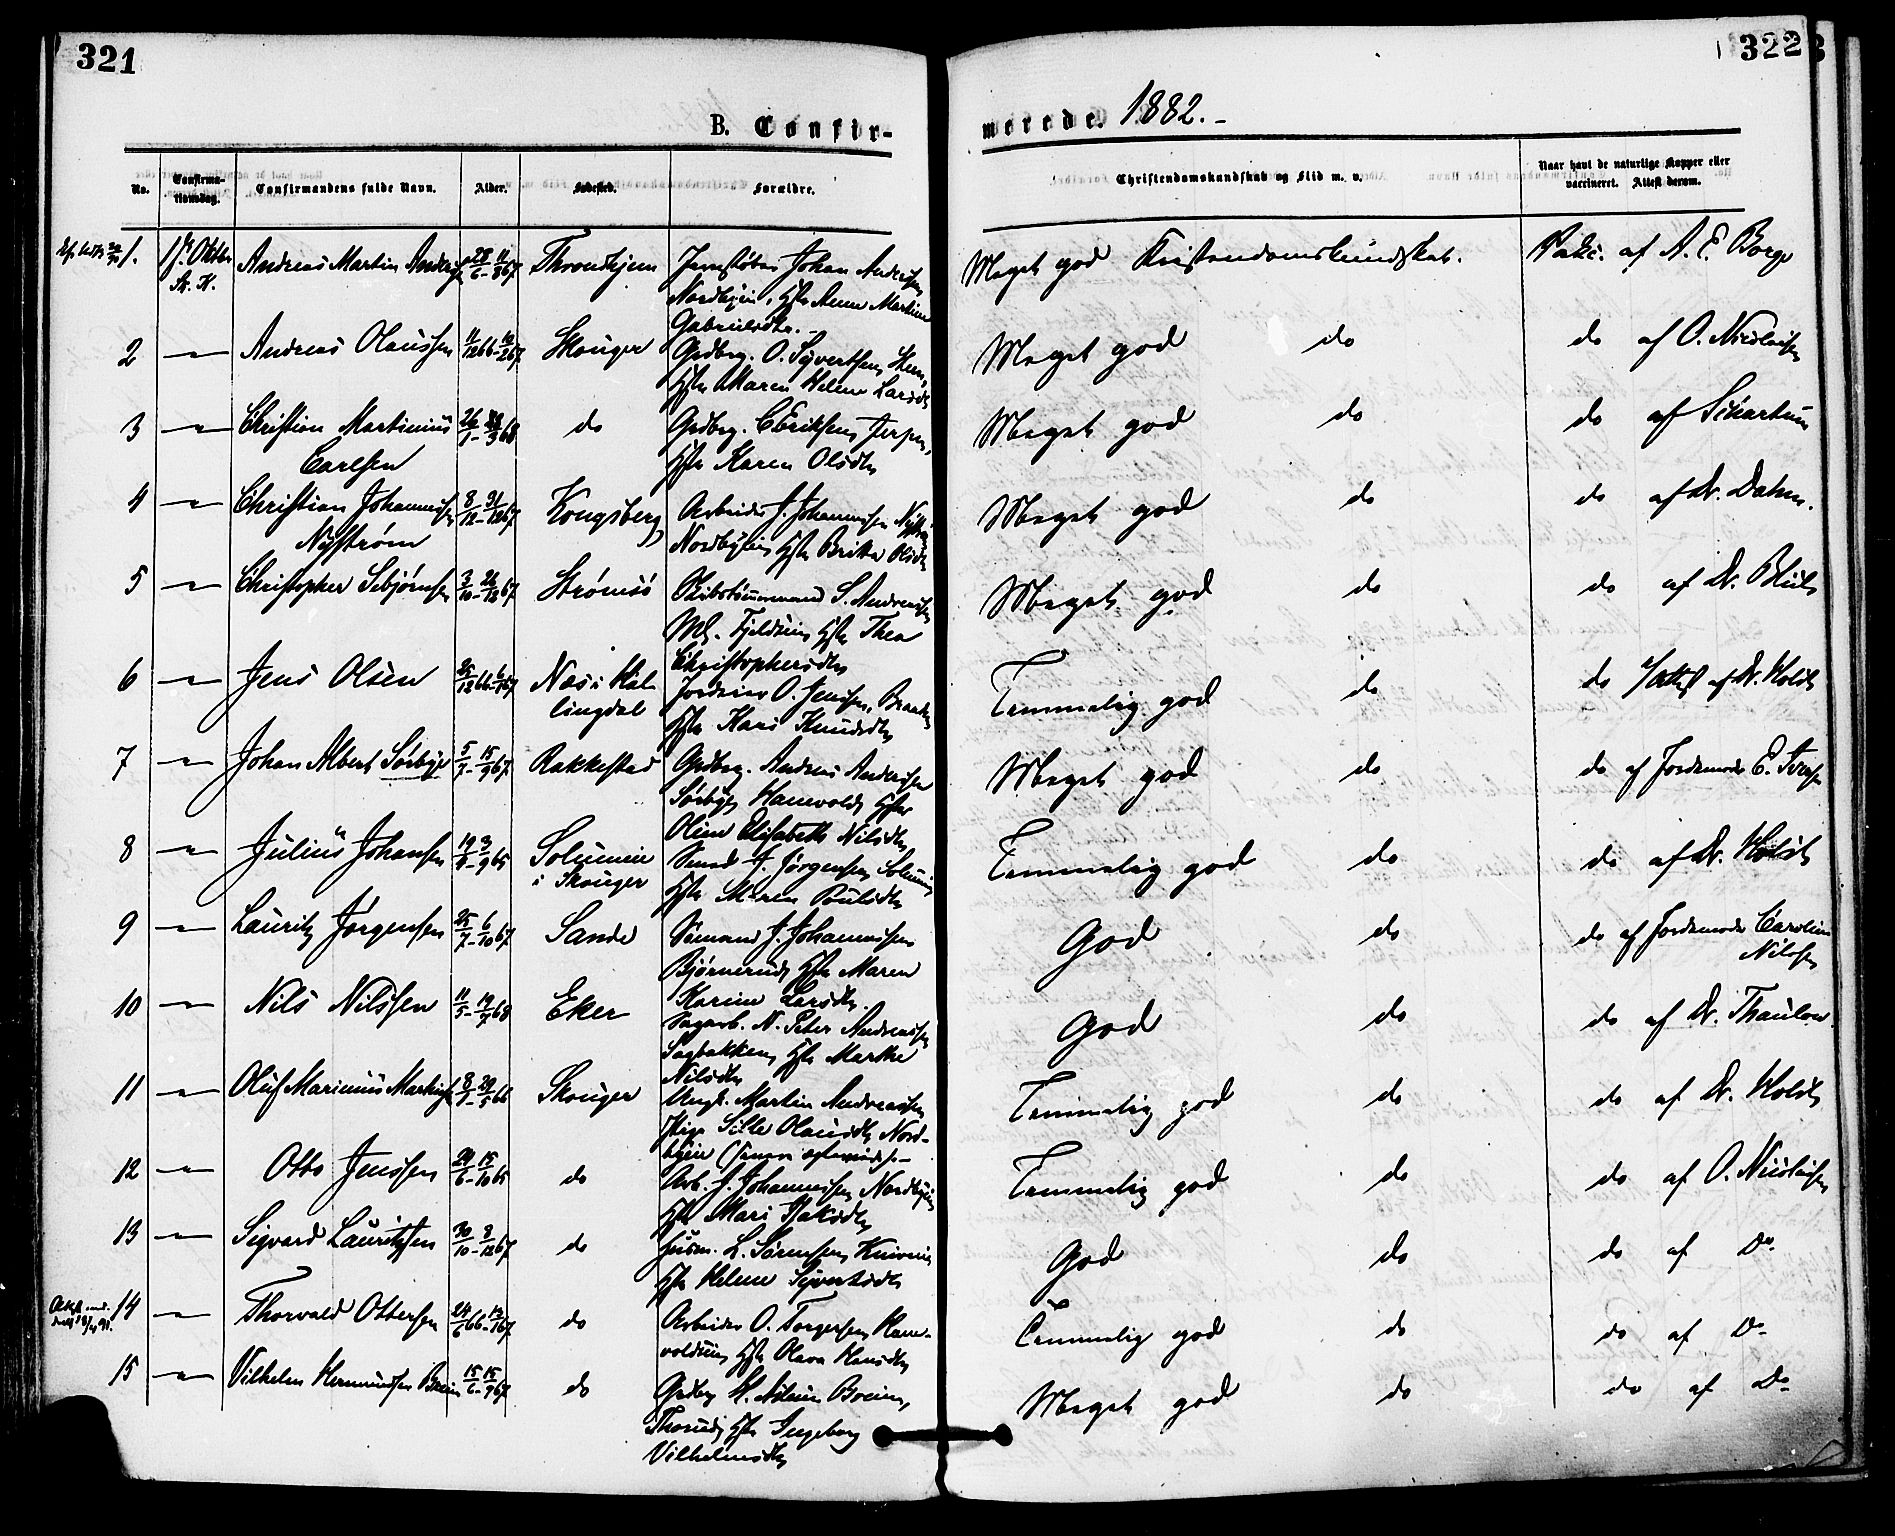 321
322
B. Confir-
merede. 1882.-
No.
Confirma-
tionsdag.
Confirmandens fulde Navn.
Alder.
Fødested.
Forældre.
Christendomskundskab og Flid m. v.
Naar havt de naturlige Kopper eller
vaccineret. Attest derom.
1. 1ste Oktbr Andreas Martin Andersen 28/6 - 11/8 67 Throndhjem Jernstøber Johan Andersen
Sk. K. Nordbyein, Hstr Anne Martine
Gabrielsdtr. -
Meget god Kristendomskundskab. Vakc. af A. E. Borge
2 — Andreas Olaussen 11/12 66 - 10/2 67 Skouger Grdbrg. O. Syvertsen,
Hstr Maren Helene Larsdtr
Meget god do do af O. Nicolaisen
3 — Christian Martinius 26/1 - 3 68 do Grdbrg. C Eriksen, Jerpen,
Carlsen Hstr Karen Olsdtr
Meget god do do af Schartum
4 — Christian Johannessen 8/12 - 31/12 67 Kongsberg Arbeider J. Johannessen
Nystrøm Nordbyein, Hstr Britta Olsdtr
Meget god do do af Dr. Dahm.
5 — Christopher Sebjørnsen 3/10 - 26/12 67 Strømsø Skibstømmermand S. Andreassen
Fjeldein, Hstr Thea
Christophersdtr
Meget god do do af Dr. Blich
6 — Jens Olsen 25/12 66 - 6/1 67 Næs i Hal- Jordeier O. Jenssen, Braaten
lingdal Hstr Kari Knudsdtr
Temmelig god do do /Attest af Dr. Holst
7 — Johan Albert Sørbye 5/7 - 15/9 67 Rakkestad Grdbrg. Andreas Andersen
Sørbye, Hanevold, Hstr
Oline Elisabeth Nilsdtr
Meget god do do af Jordemoder E. Iversen
8 — Julius Johansen 19/8 - 3/9 65 Solumeie Smed J. Jørgensen, Solumeie
i Skouger Hstr Maren Poulsdtr
Temmelig god do do af Dr. Holst
9 — Lauritz Jørgensen 25/7 - 6/10 67 Sande Sømand J. Johannessen
Bjørnerud, Hstr Maren
Karine Larsdtr.
God do do af Jordemoder Caroline
Nilssen
10 — Nils Nilssen 11/5 - 19/7 68 Eker Sagarb. N. Peter Andreassen
Sagbakken, Hstr Marthe
Nilsdtr
God do do af Dr. Thaulow
11 — Oluf Marinius Martinsen 8/1 - 20/5 66 Skouger Ungk. Martin Andreassen
Pige Sille Olausdtr Nord-
byein (senere ægteviede. -
Temmelig god do do af Dr. Holst
12 — Otto Jenssen 24/6 - 15/10 65 do Arb. J. Johannessen, Nordbyein
Hstr Mari Isaksdtr
Temmelig god do do af O. Nicolaisen
13 — Sigvard Lauritzsen 30/10 - 8/12 67 do Husm. L. Sørensen, Kniveeie
Hstr Helene Syvertsdtr
God do do af Do.
14 — Thorvald Ottersen 24/6 66 - 13/1 67 do Arbeider O. Torgersen, Hane-
voldeie, Hstr Olava Hansdtr
Temmelig god do do af Do
15 — Vilhelm Hermundsen Breien 15/6 - 15/9 67 do Grdbrg H. Nilsen Breien,
Thorrud, Hstr Ingeborg
Vilhelmsdtr
Meget god do do af Do